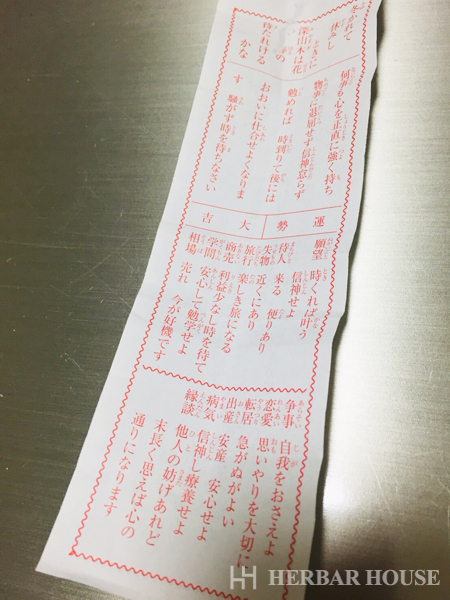 冬がれて
休みし
ときに
深山木は花
の
待たれける
かな
何事も心を正直に強く持ち
物事に退屈せず信神怠らず
勉めれば 時到りて後には
おおいに仕合せよくなりま
す 騒がず時を待ちなさい
運勢 大吉
願望 時くれば叶う
信神せよ
待人 来る 便りあり
失物 近くにあり
旅行 楽しき旅になる
商売 利益少なし時を待て
学問 安心して勉学せよ
相場 売れ 今が好機です
争事 自我をおさえよ
恋愛 思いやりを大切に
転居 急がぬがよい
出産 安産 安心せよ
病気 信神し療養せよ
縁談 他人の妨げあれど
末長く思えば心の
通りになります
HERBAR HOUSE